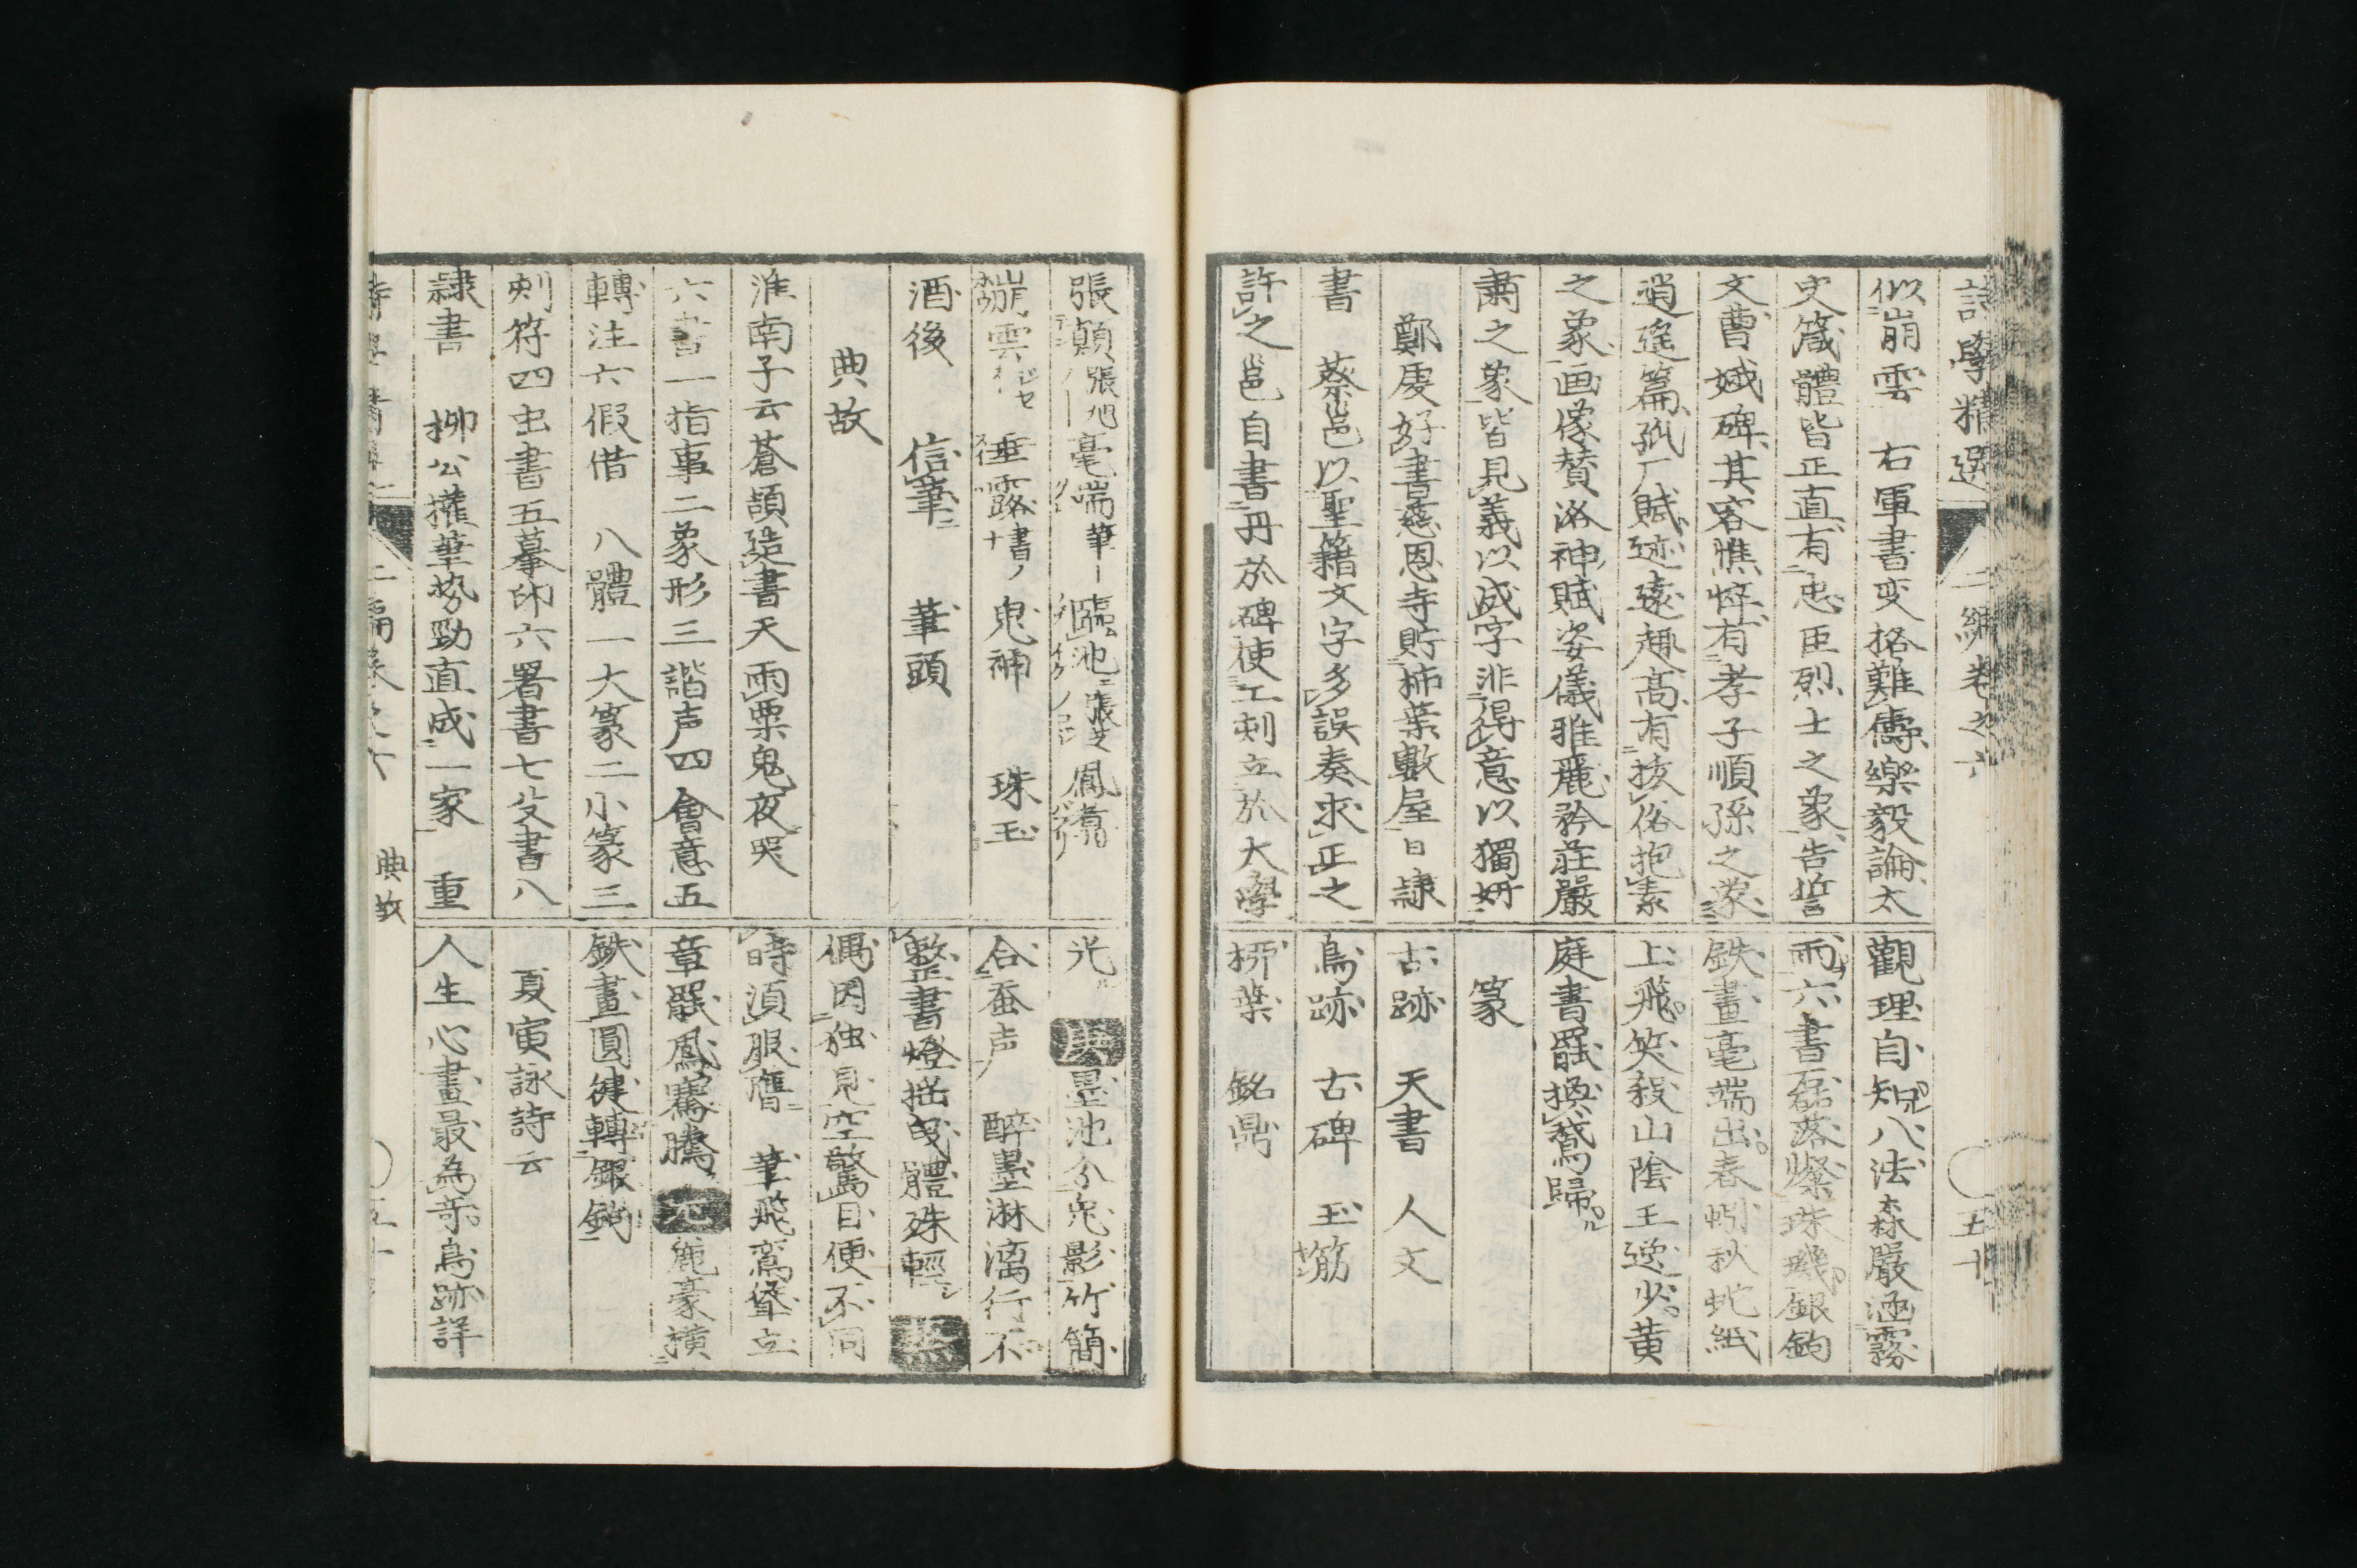 詩學精選 二編卷之六 五十
似崩雲 右軍書変格難儔樂毅論太
史箴體皆正直有忠臣烈士之象告誓
文曹娥碑其容憔悴有孝子順孫之象
逍遙篇孤厂賦迹遠趣高有抜俗抱素
之象画像賛洛神賦姿儀雅麗矜莊嚴
肅之象皆見義以成字非得意以獨妍
鄭虔好書慈恩寺貯柿葉數屋日隷
書 蔡邕以聖籍文字多誤奏求正之
許之邕自書丹於碑使工刻立於大學
觀理自知八法森嚴涵霧
雨六書磊落燦珠璣銀鉤
鉄畫毫端出春蚓秋蛇紙
上飛笑殺山陰王逸少黄
庭書罷換鵞歸
篆
古跡 天書 人文
鳥跡 古碑 玉筯
柳葉 銘鼎
張顛張旭 毫端筆 臨池張芝 鳳翥
崩雲 垂露書ノ 鬼神 珠玉
酒後 信筆 筆頭
典故
淮南子云蒼頡造書天雨粟鬼夜哭
六書一指事二象形三諧声四會意五
轉注六假借 八體一大篆二小篆三
刻符四虫書五摹印六署書七殳書八
隷書 柳公權筆勢勁直成一家 重
光 庚 墨池分兎影竹簡
合蚕声 醉墨淋漓行不
整書燈揺曳體殊輕 蒸
偶因独見空驚目便不同
時須服膺 筆飛鸞聳立
章罷鳳騫騰 元 麄豪横
鉄畫圓健轉銀鉤
夏寅詠詩云
人生心畫最為竒鳥跡詳
典故